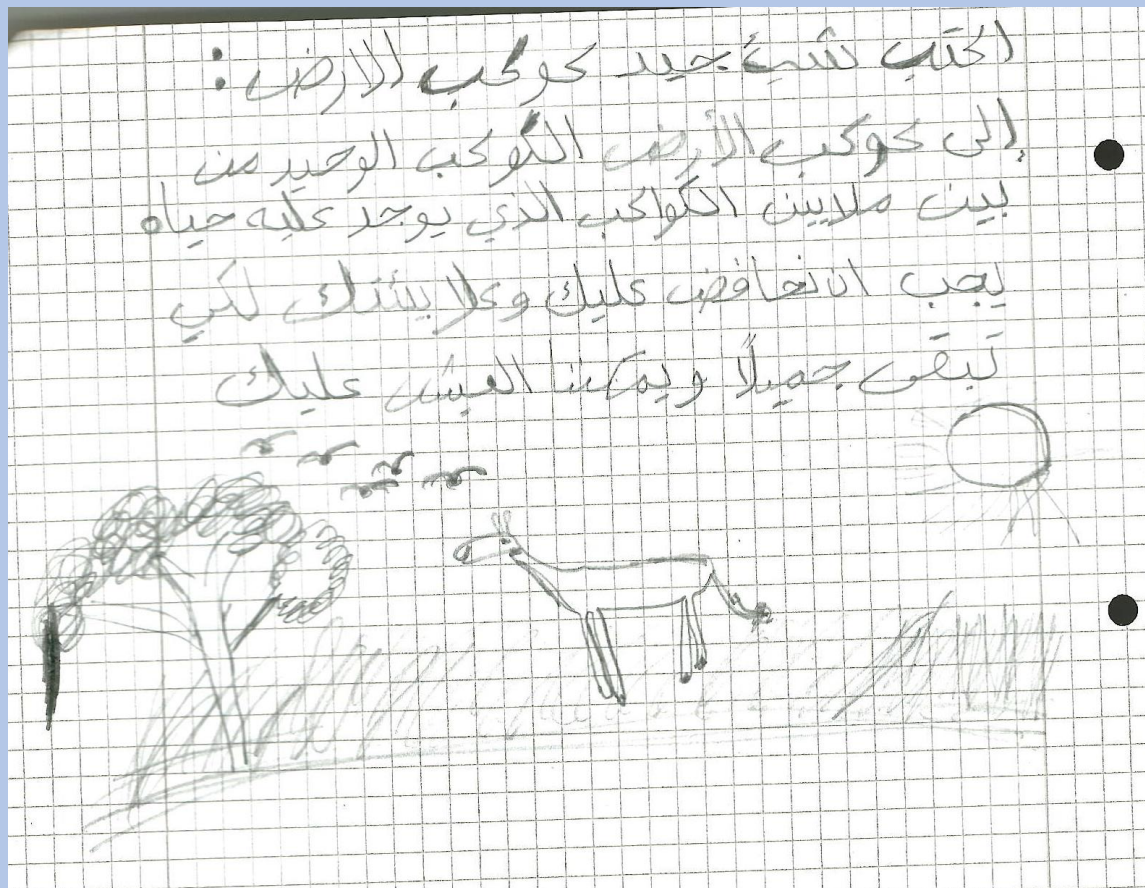 اكتب شيئ جيد كوكب الارض :
إلى كوكب الأرض الكوكب الوحيد من
بين ملايين الكواكب الذي يوجد عليه حياه
يجب ان نحافض عليك وعلا بيئتك لكي
تبقى جميلاً ويمكننا العيش عليك